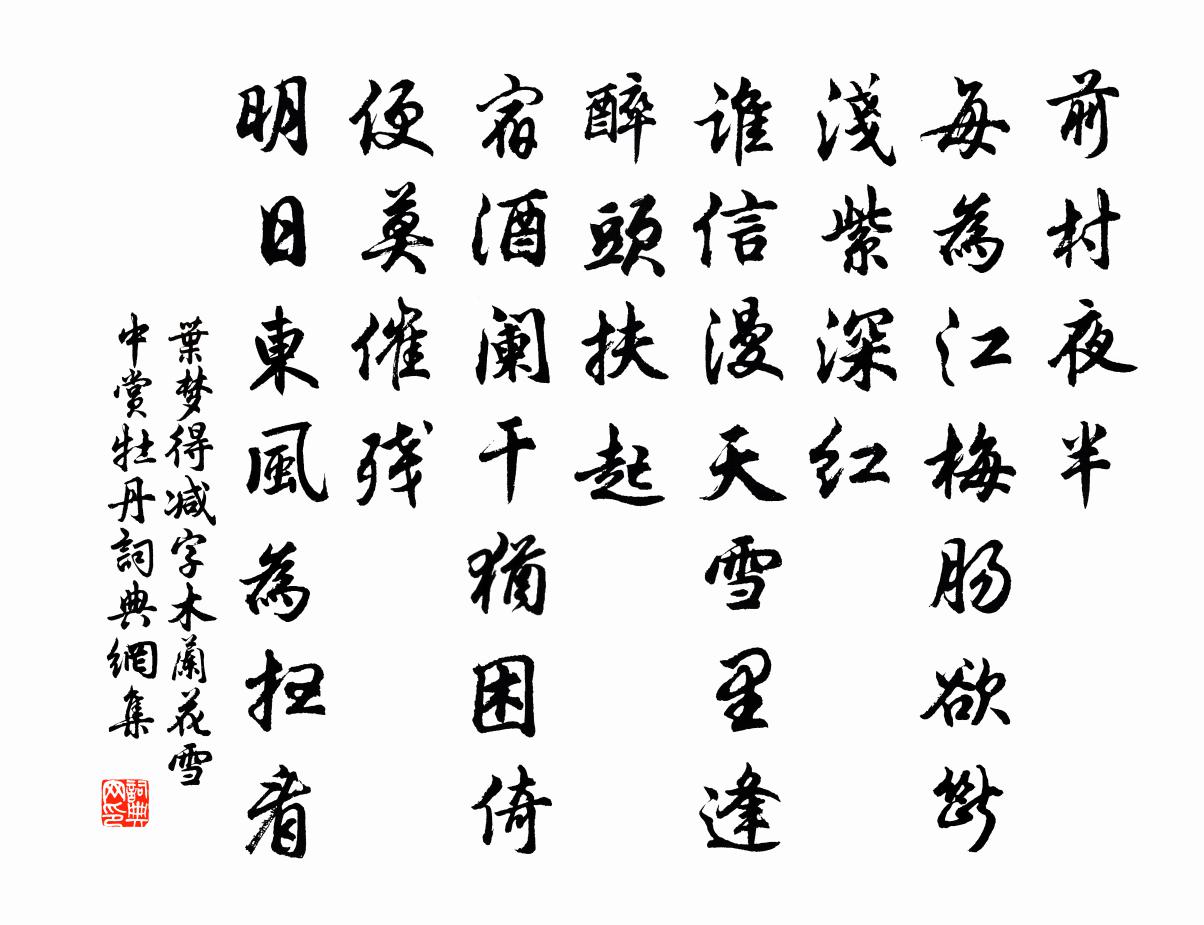 前村夜半
每為江梅肠欲斷
淺紫深红
谁信漫天雪里逢
醉頭扶起
宿酒阑干猶困倚
便莫催残
明日東風為扫看
葉梦得减字木蘭花雪
中賞牡丹詞典網集
詞典网印